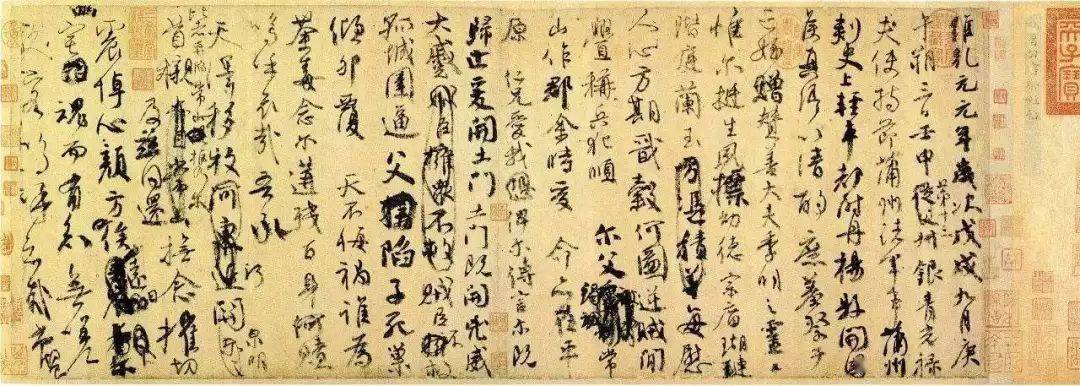 維乾元元年歲次戊戌九月庚
午朔三日壬申第十三叔銀青光祿
夫使持節蒲州諸軍事蒲州
刺史上輕車都尉丹楊縣開國
侯真卿以清酌庶羞祭于
亡姪贈贊善大夫季明之靈曰
惟爾挺生夙標幼德宗廟瑚璉
階庭蘭玉方憑積善每慰
人心方期戩穀何圖逆賊閒
釁稱兵犯順爾父竭誠常
山作郡余時受命亦在平
原仁兄愛我俾爾傳言爾既
歸止爰開土門土門既開凶威
大蹙賊臣擁眾不救賊臣不救
孤城圍逼父陷子死巢
傾卵覆天不悔禍誰為
荼毒念爾遘殘百身何贖
嗚呼哀哉吾承
天澤移牧河關泉明
比者再陷常山攜爾
首櫬及茲同還撫念摧切
震悼心顏方俟遠日
爾幽宅魂而有知無嗟
久客嗚呼哀哉尚饗